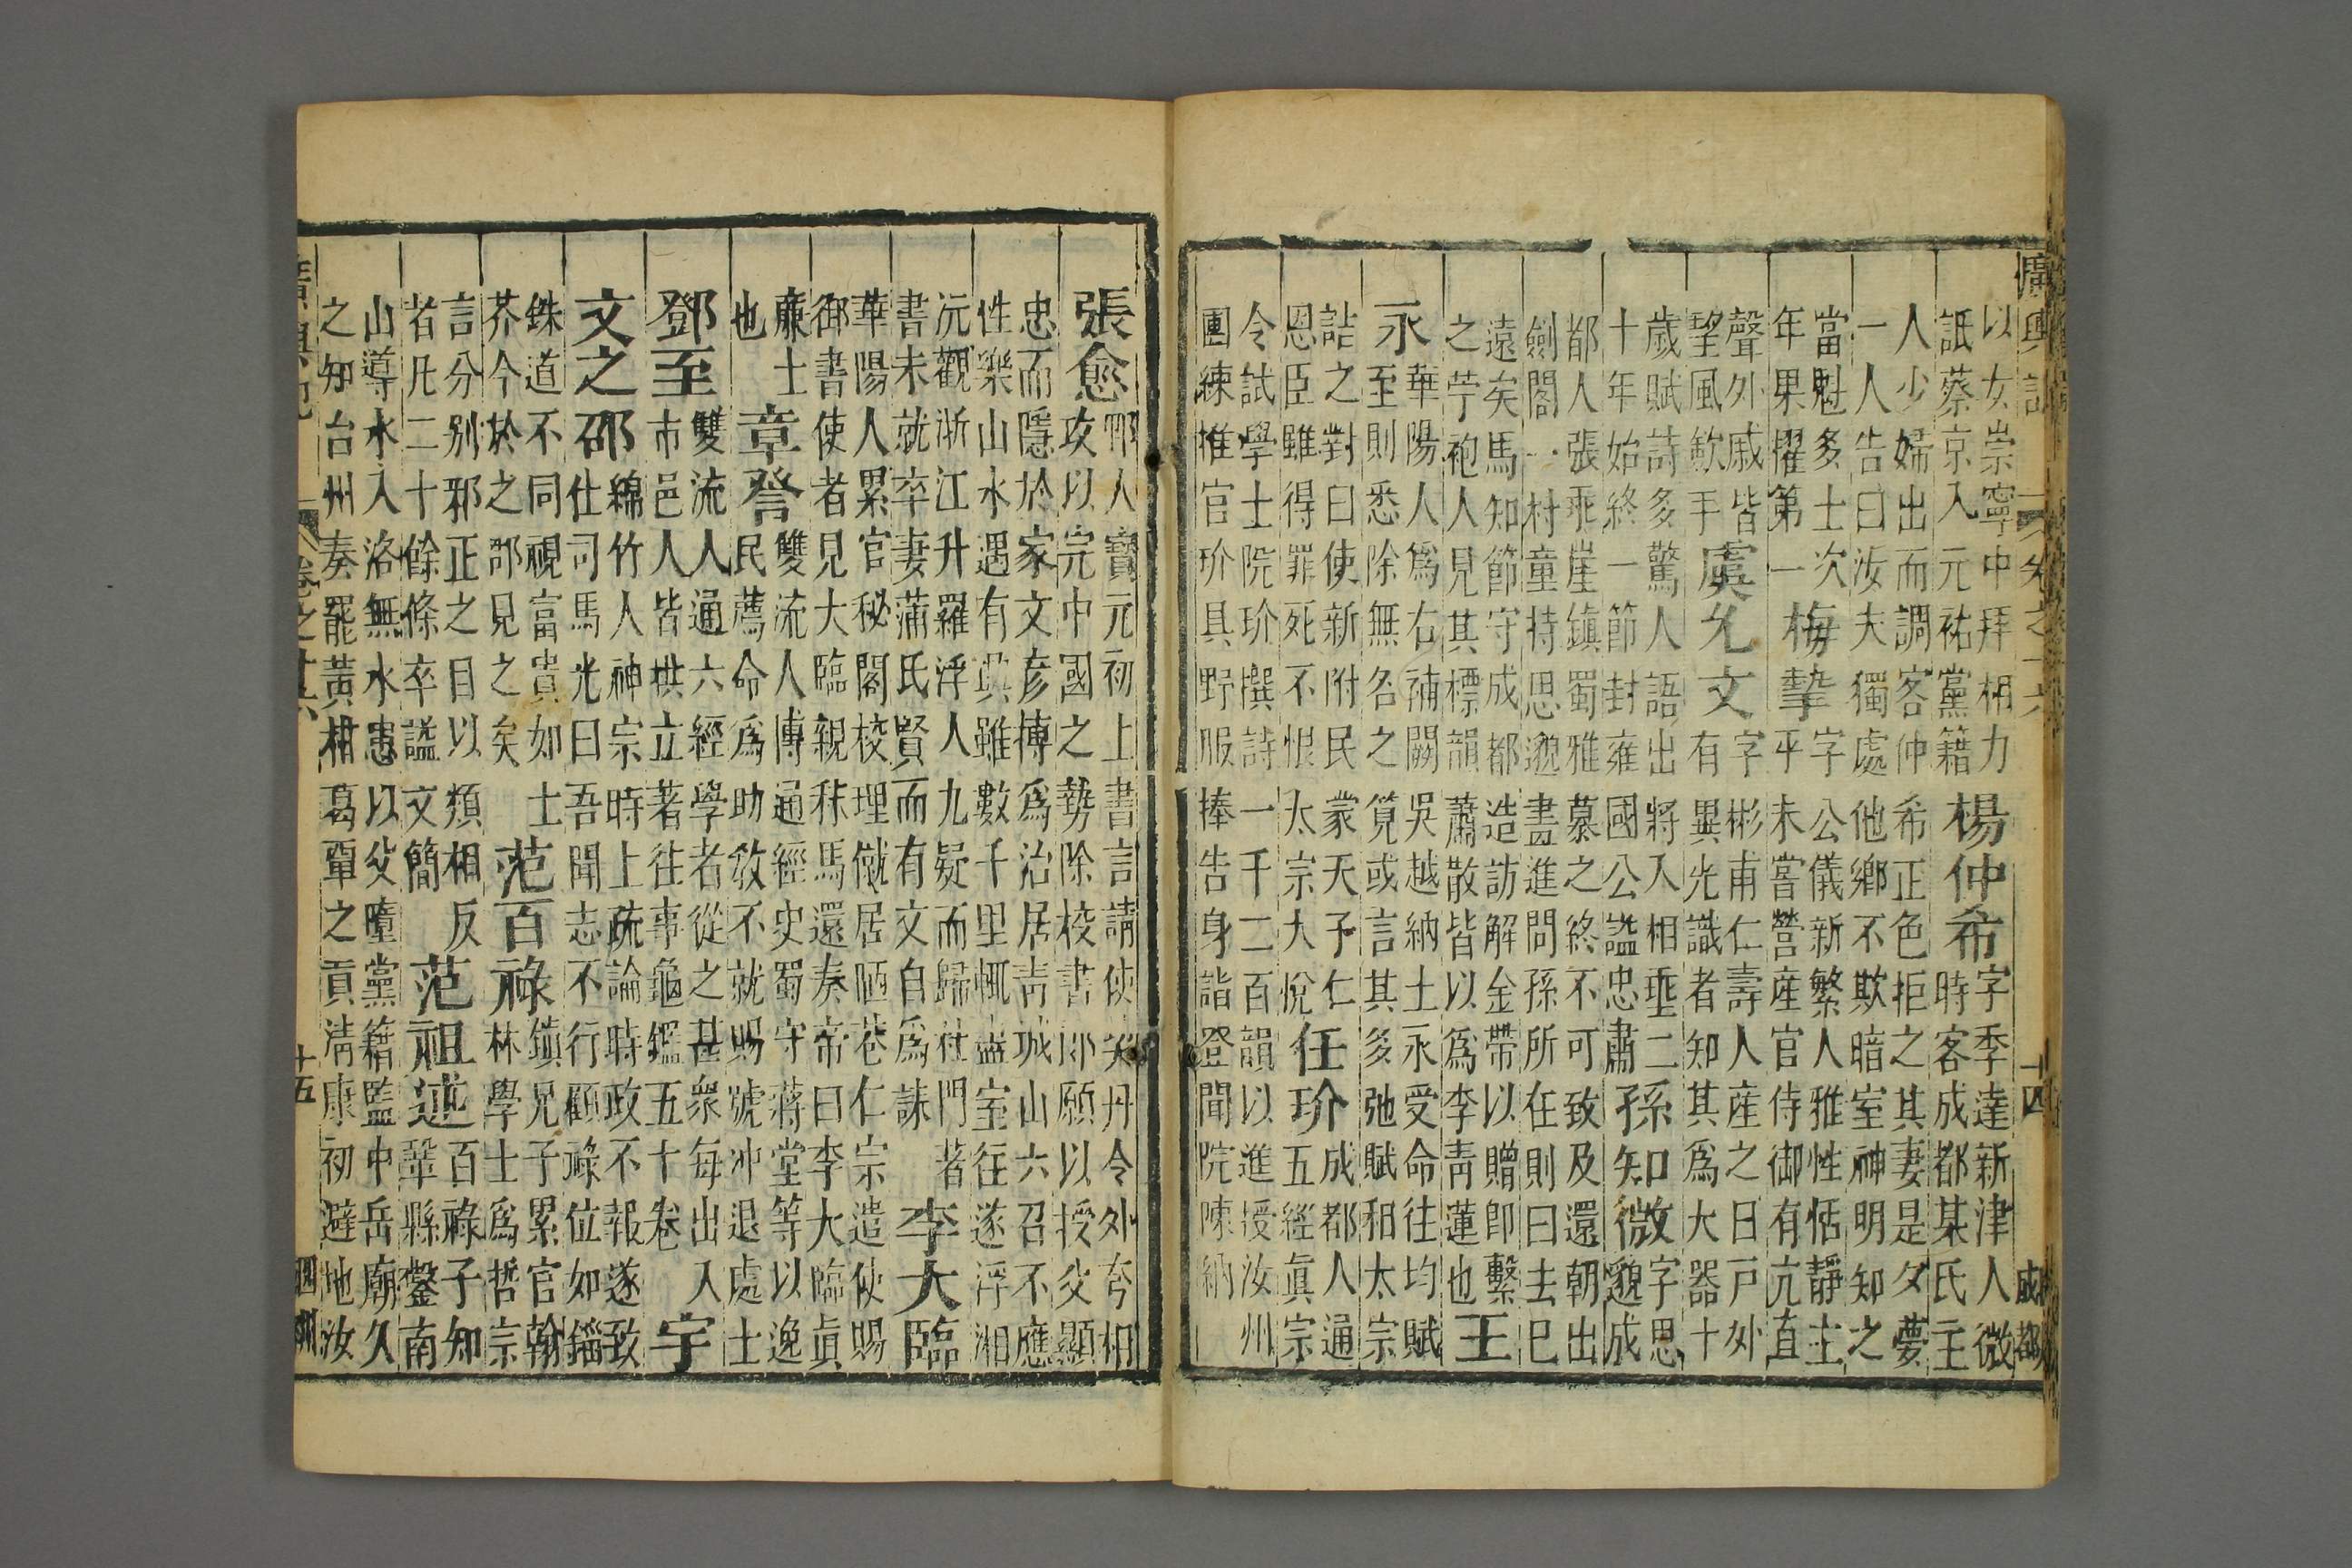 廣輿記 卷之十六 十四 成都
以女崇寧中拜相力
詆蔡京入元祐黨籍
楊仲希
字季達新津人微
時客成都某氏主
人少婦出而調客仲希正色拒之其妻是夕夢
一人告曰汝夫獨處他鄉不欺暗室神明知之
當魁多士次
年果擢第一
梅摯
字公儀新繁人雅性恬靜主
平未嘗營産官侍御有亢直
聲外戚皆
望風歛手
虞允文
字彬甫仁壽人産之日戸外
有異光識者知其爲大器十
歲賦詩多驚人語出將入相垂二
十年始終一節封雍國公謚忠肅
孫知微
字思
邈成
都人張乖崖鎮蜀雅慕之終不可致及還朝出
劍閣一村童持思邈畫進問孫所在則曰去已
遠矣馬知節守成都造訪解金帶以贈卽繫
之苧袍人見其標韻蕭散皆以爲李靑蓮也
王
永
華陽人爲右補闕吳越納土永受命往均賦
至則悉除無名之筧或言其多弛賦和太宗
詰之對曰使新附民蒙天子仁
恩臣雖得罪死不恨太宗大悅
任玠
成都人通
五經眞宗
令試學士院玠撰詩一千二百韻以進授汝州
團練推官玠具野服捧告身詣登聞院陳納
張愈
郫人寶元初上書言請使契丹令外夸相
攻以完中國之勢除校書郎願以授父顯
忠而隱於家文彦博爲治居靑城山六召不應
性樂山水遇有興雖數千里輒盡室往遂浮湘
沅觀浙江升羅浮人九疑而歸杜門著
書未就卒妻蒲氏賢而有文自爲誄
李大臨
華陽人累官秘閣校理僦居陋巷仁宗遣使賜
御書使者見大臨親秣馬還奏帝曰李大臨眞
亷士
也
章詧
雙流人博通經史蜀守蔣堂等以逸
民薦命爲助敎不就賜號沖退處士
鄧至
雙流人通六經學者從之甚衆每出入
市邑人皆拱立著往事龜鑑五十卷
宇
文之邵
綿竹人神宗時上疏論時政不報遂致
仕司馬光曰吾聞志不行顧祿位如錙
銖道不同視富貴如土
芥今於之邵見之矣
范百祿
鎮兄子累官翰
林學士爲哲宗
言分别邪正之目以類相反
者凡二十餘條卒謚文簡
范祖述
百祿子知
鞏縣鑿南
山導水入洛無水患以父墮黨籍監中岳廟久
之知台州奏罷黃柑葛覃之貢淸康初避地汝
廣輿記 卷之十六 十五